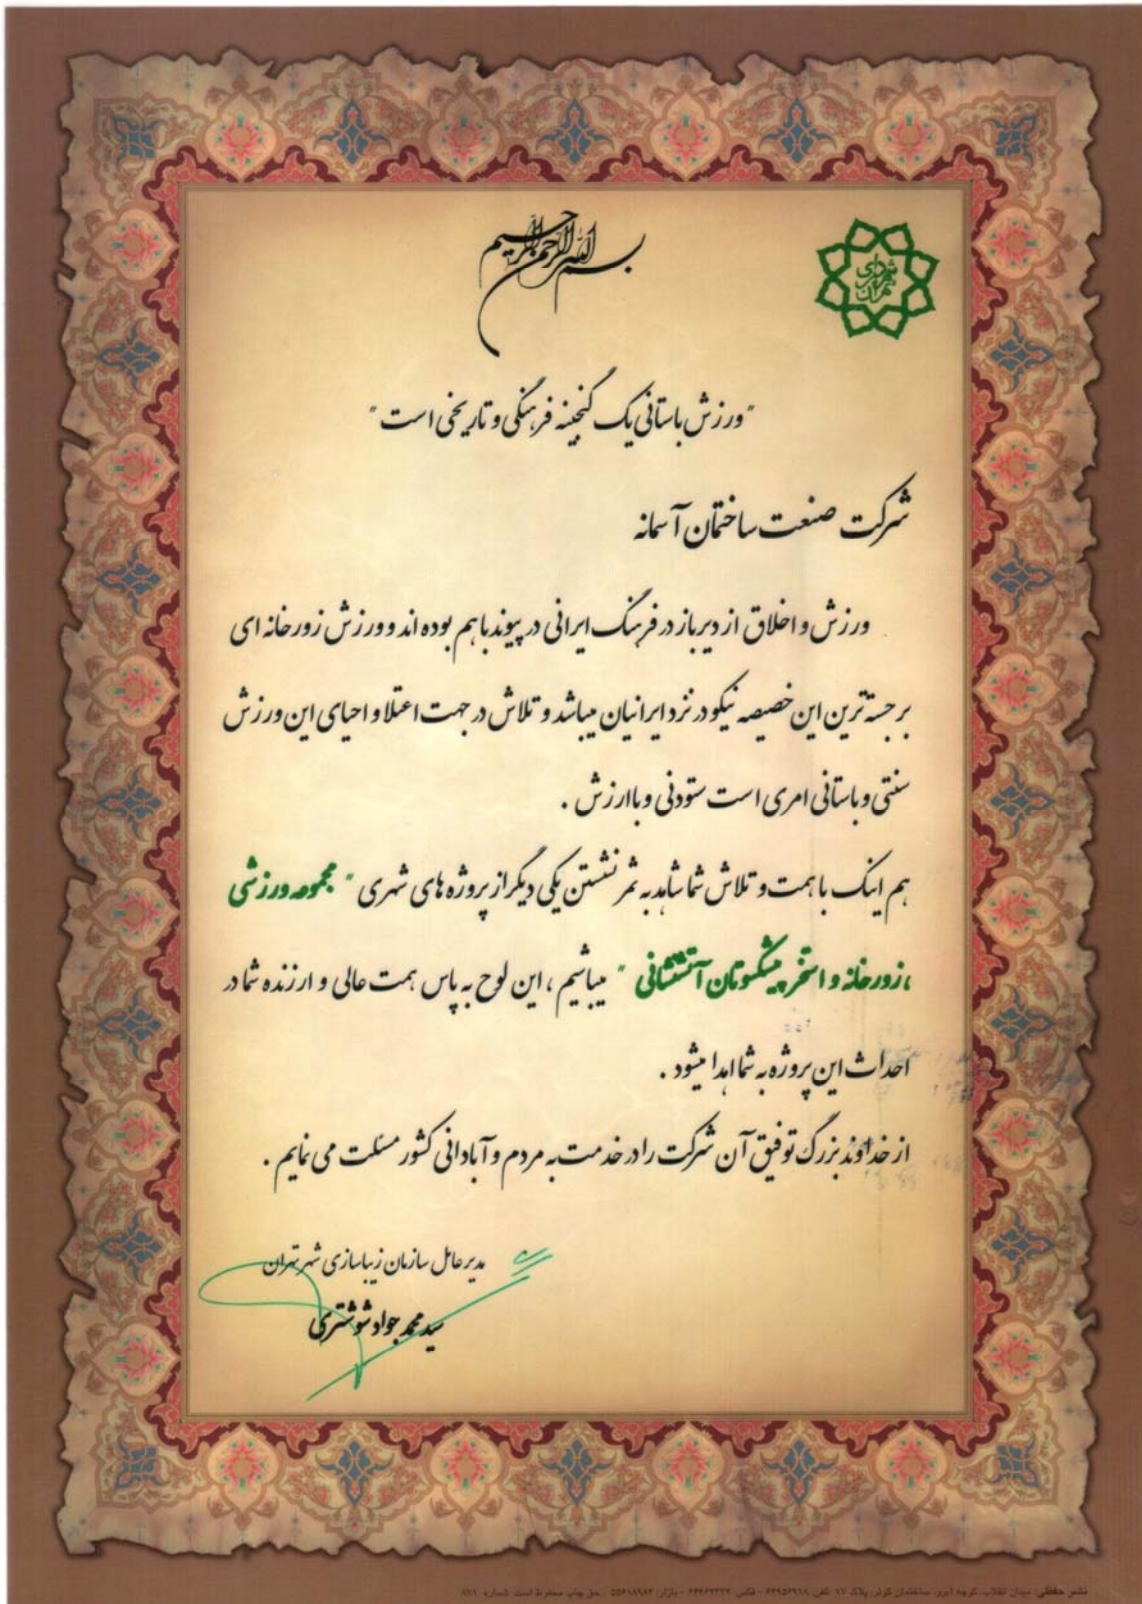 بسم الله الرحمن الرحیم
شهرداری تهران
"ورزش باستانی یک گنجینه فرهنگی و تاریخی است"
شرکت صنعت ساختمان آسمانه
ورزش و اخلاق از دیرباز در فرهنگ ایرانی در پیوند با هم بوده اند و ورزش زورخانه ای
برجسته ترین این خصیصه نیکو در نزد ایرانیان میباشد و تلاش در جهت اعتلا و احیای این ورزش
سنتی و باستانی امری است ستودنی و باارزش .
هم اینک با همت و تلاش شما شاهد به ثمر نشستن یکی دیگر از پروژه های شهری " مجموعه ورزشی
، زورخانه و استخر پیشکسوتان آتشنشانی " میباشیم ، این لوح به پاس همت عالی و ارزنده شما در
احداث این پروژه به شما اهدا میشود .
از خداوند بزرگ توفیق آن شرکت را در خدمت به مردم و آبادانی کشور مسئلت می نمایم .
مدیر عامل سازمان زیباسازی شهر تهران
سید محمد جواد شوشتری
نشر حافظی: میدان انقلاب، کوچه آبرو، ساختمان کوثر، پلاک ۱۷ تلفن: ۶۶۹۵۶۹۱۸ - فکس: ۶۶۴۶۲۲۲۲ - بازار: ۵۵۶۱۸۹۸۲ - حق چاپ محفوظ است. شماره: ۸۷۱